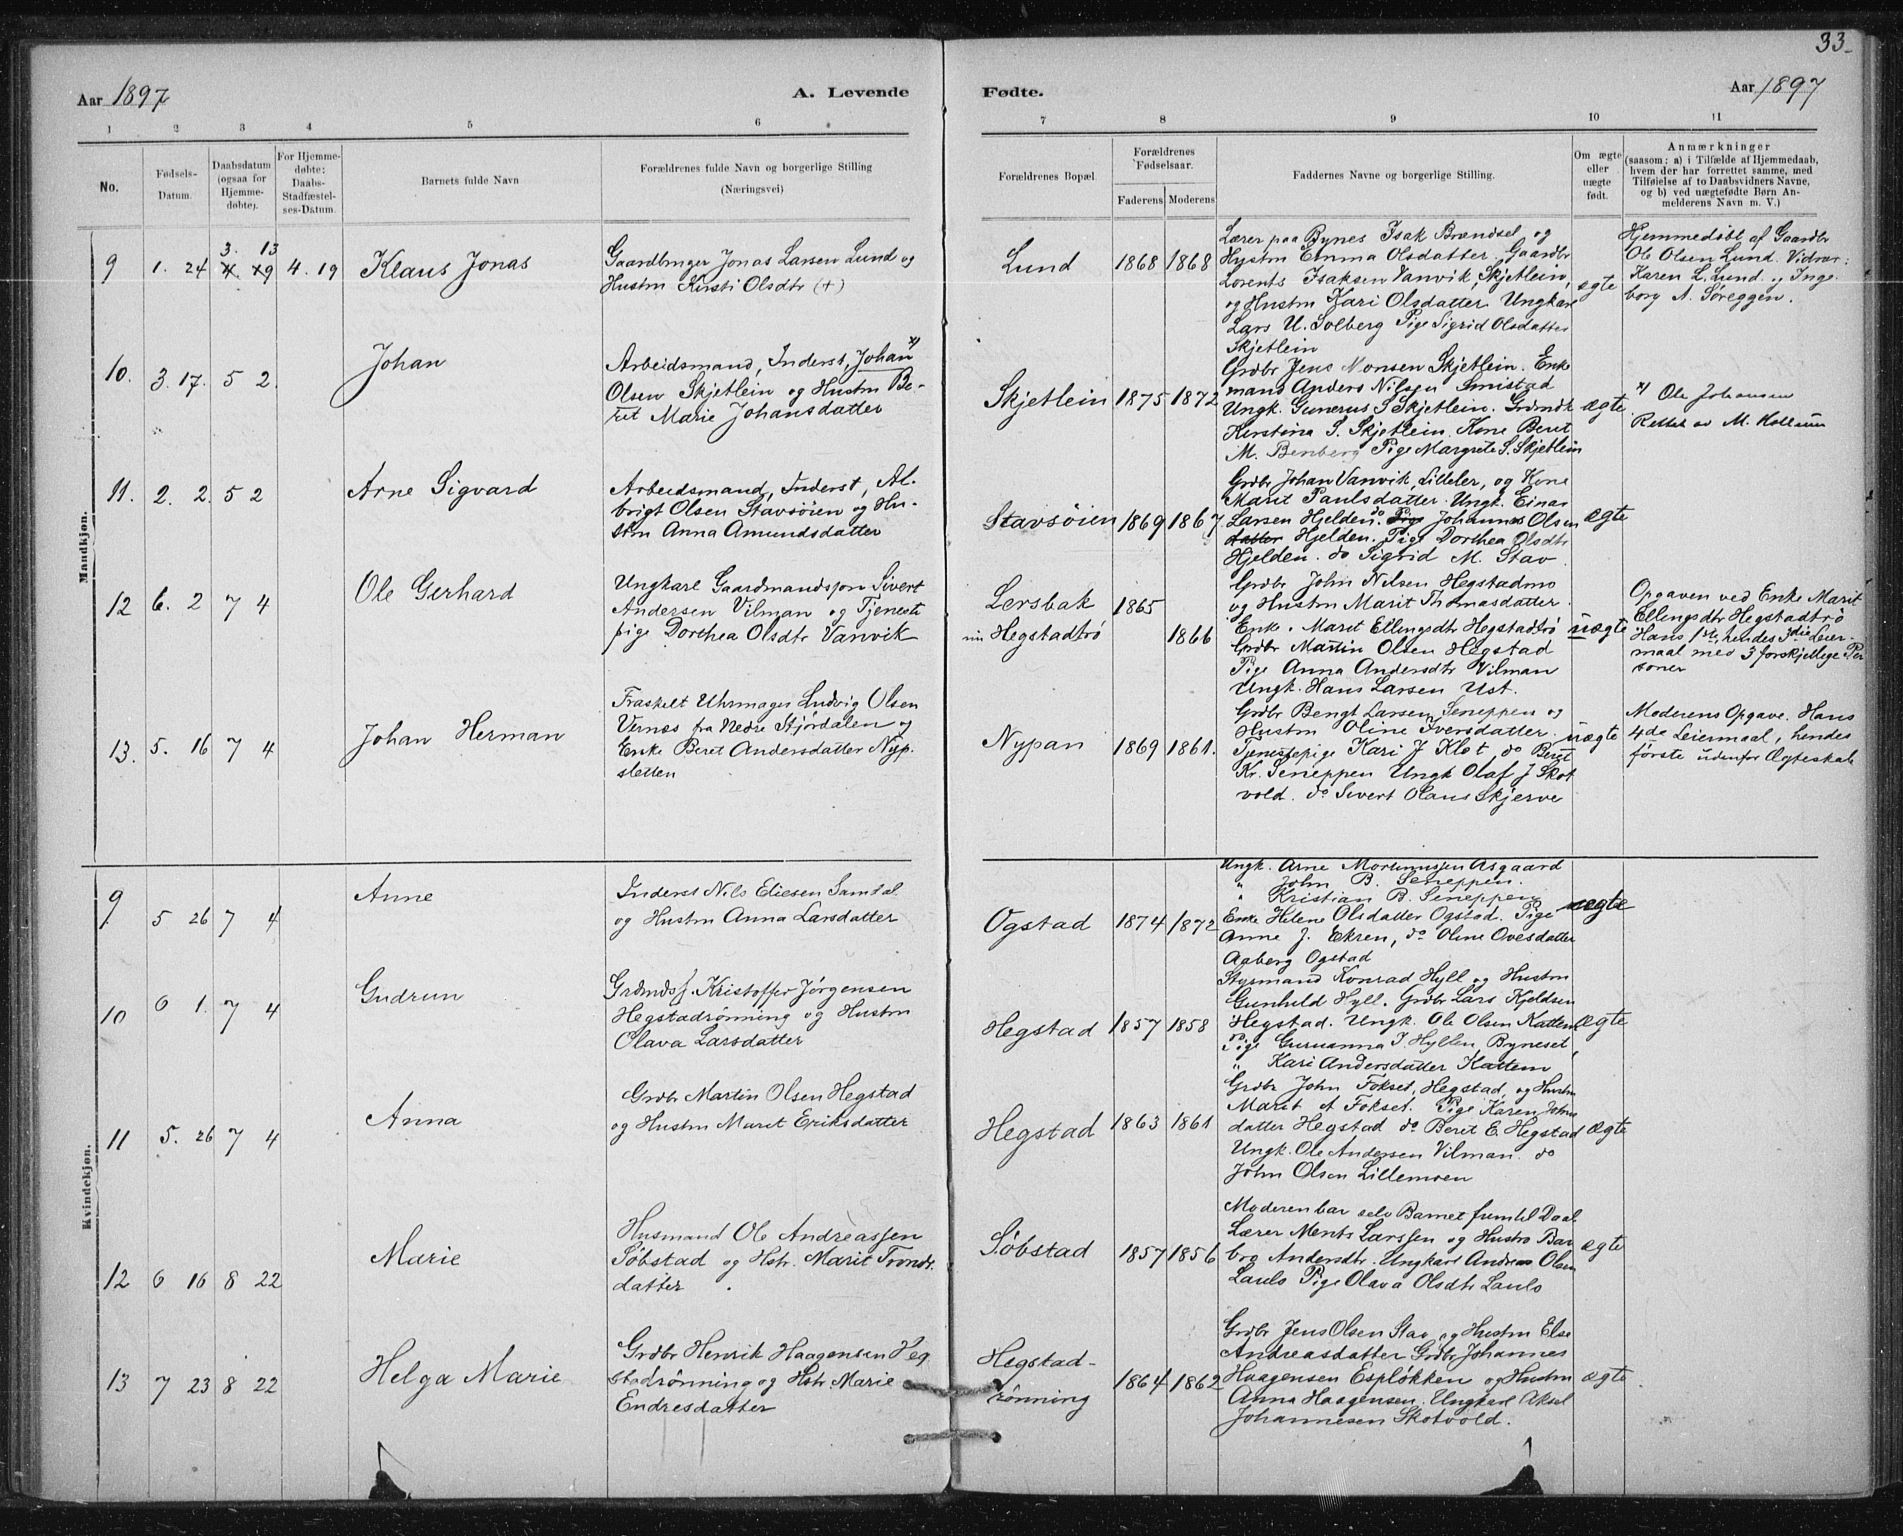 33
Aar 1897
A. Levende
Fødte.
Aar 1897
1 2 3 4 5 6 7 8 9 10 11
No.
Fødsels-
Datum.
Daabsdatum
(ogsaa for
Hjemme-
døbte).
For Hjemme-
døbte:
Daabs-
Stadfæstel-
ses-Datum.
Barnets fulde Navn
Forældrenes fulde Navn og borgerlige Stilling
(Næringsvei)
Forældrenes Bopæl.
Forældrenes
Fødselsaar.
Faderens Moderens
Faddernes Navne og borgerlige Stilling.
Om ægte
eller
uægte
født.
Anmærkninger
(saasom: a) i Tilfælde af Hjemmedaab,
hvem der har forrettet samme, med
Tilføielse af to Daabsvidners Navne,
og b) ved uægtefødte Børn An-
melderens Navn m. V.)
Mandkjøn.
9 1. 24 3. 13 4. 19 4. 19
Klaus Jonas
Gaardbruger Jonas Larsen Lund og
Hustru Kirsti Olsdtr (+)
Lund 1868 1868
Lærer paa Bynes Isak Brændsel og
Hustru Emma Olsdatter. Gaardbr
Lorents Isaksen Vanvik, Skjetlein,
og Hustru Kari Olsdatter Ungkarl
Lars U. Solberg Pige Sigrid Olsdatter
Skjetlein
ægte
Hjemmedøbt af Gaardbr
Ole Olsen Lund. Vidner:
Karen L. Lund og Inge
borg A. Søreggen.
10. 3. 17. 5 2
Johan
Arbeidsmand, Inderst, Johan x)
Olsen Skjetlein og Hustru Be-
ret Marie Johansdatter
Skjetlein 1875 1872
Grdbr Jens Monsen Skjetlein. Enke
mand Anders Nilsen Smistad
Ungk. Gunerus S Skjetlein. Grdmdk
Kerstina S. Skjetlein. Kone Beret
M. Benberg Pige Margrete S. Skjetlein
ægte
x) Ole Johansen
Rettet av M. Kollsun
11. 2. 2. 5 2
Arne Sigvard
Arbeidsmand, Inderst, Al-
brigt Olsen Stavsøien og Hu-
stru Anna Amundsdatter
Stavsøien 1869 1867
Grdbr Johan Vanvik, Lilleler, og Kone
Marit Paulsdatter. Ungk. Einar
Larsen Hjelden. do Pige Johannes Olsen
datter Hjelden. Pige Dorthea Olsdtr
Hjelden. do Sigrid M. Stav
ægte
12 6. 2 7 4
Ole Gerhard
Ungkarl Gaardmandssøn Sivert
Andersen Vilman og Tjeneste
pige Dorthea Olsdtr Vanvik
Lersbak 1865
Hegstadtrø 1866
Grdbr John Nilsen Hegstadmo
og Hustru Marit Thomasdatter.
Enke. Marit Ellingsdtr Hegstadtrø
Grdbr Martin Olsen Hegstad
Pige Anna Andersdtr Vilman
Ungk. Hans Larsen Ust.
uægte
Opgaven ved Enke Marit
Ellingsdtr Hegstadtrø
Hans 1ste, hendes 3die Leier-
maal med 3 forskjellige Per
soner
13. 5. 16 7 4
Johan Herman
Fraskelt Uhrmager Ludvig Olsen
Vernæs fra Nedre Stjørdalen og
Enke Beret Andersdatter Nyp-
sletten
Nypan 1869 1861.
Grdbr Bengt Larsen Seneppen og
Hustru Oline Iversdatter.
Tjenestepige Kari J Klet do Beret
Kr. Seneppen Ungk Olaf J Skot
vold. do Sivert Olaus Skjerve
uægte
Moderens Opgave. Hans
4de Leiermaal, hendes
første udenfor Ægteskab
Kvindekjøn.
9 5 26 7 4
Anne
Inderst Nils Eliesen Samdal
og Hustru Anna Larsdatter
Ogstad 1874 1872
Ungk. Arne Mortinussen Asgaard
" John B. Seneppen.
" Kristian B. Seneppen
Enke Helene Olsdatter Ogstad. Pige
Anne J. Ekren, do Oline Ovesdatter
Aaberg Ogstad
ægte
10 6 1. 7 4
Gudrun
Grdmdsf. Kristoffer Jørgensen
Hegstadrønning og Hustru
Olava Larsdatter
Hegstad 1857 1858
Styrmand Konrad Hyll og Hustru
Gunhild Hyll. Grdbr Lars Kjeldsen
Hegstad. Ungk. Ole Olsen Kattem
Pige Guruanna J. Hyllen Byneset,
" Kari Andersdatter Kattem
ægte
11 5. 26 7 4
Anna
Grdbr Martin Olsen Hegstad
og Hustru Marit Eriksdatter
Hegstad 1863 1861
Grdbr John Fokset, Hegstad, og Hustru
Marit A Fokset. Pige Karen Johns
datter Hegstad do Berit E. Hegstad
Ungk. Ole Andersen Vilman. do
John Olsen Lillemoen
ægte
12 6 16 8 22
Marie
Husmand Ole Andreassen
Søbstad og Hstr. Marit Trondr.
datter.
Søbstad 1857 1856
Moderen bar selv Barnet frem til Daab
Lærer Ments Larssen og Hustro Bar
bro Andersdtr. Ungkarl Andreas Olsen
Laulo Pige Olava Olsdtr Laulo
ægte
13 7 23 8 22
Helga Marie
Grdbr Henrik Haagensen Heg
stadrønning og Hstr. Marie
Endresdatter
Hegstad-
rønning 1864 1862
Grdbr Jens Olsen Stav og Hustru Else
Andreasdatter Grdbr Johannes
Haagensen Espløkken og Hustru
Anna Haagensen. Ungkarl Aksel
Johannesen Skotvold.
ægte